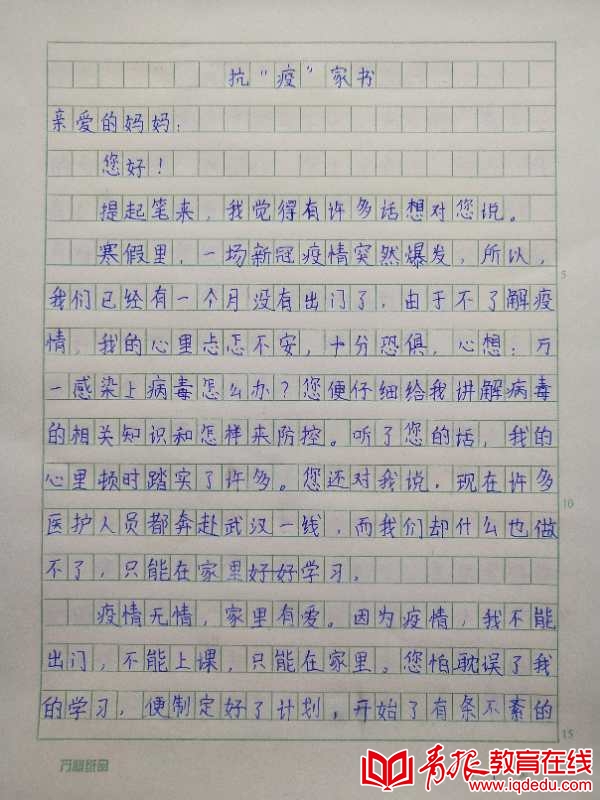 抗“疫”家书
亲爱的妈妈：
您好！
提起笔来，我觉得有许多话想对您说。
寒假里，一场新冠疫情突然爆发，所以，
5
我们已经有一个月没有出门了，由于不了解疫
情，我的心里忐忑不安，十分恐惧，心想：万
一感染上病毒怎么办？您便仔细给我讲解病毒
的相关知识和怎样来防控。听了您的话，我的
心里顿时踏实了许多。您还对我说，现在许多
10
医护人员都奔赴武汉一线，而我们却什么也做
不了，只能在家里好好学习。
疫情无情，家里有爱。因为疫情，我不能
出门，不能上课，只能在家里。您怕耽误了我
的学习，便制定好了计划，开始了有条不紊的
15
青报教育在线
www.iqdedu.com